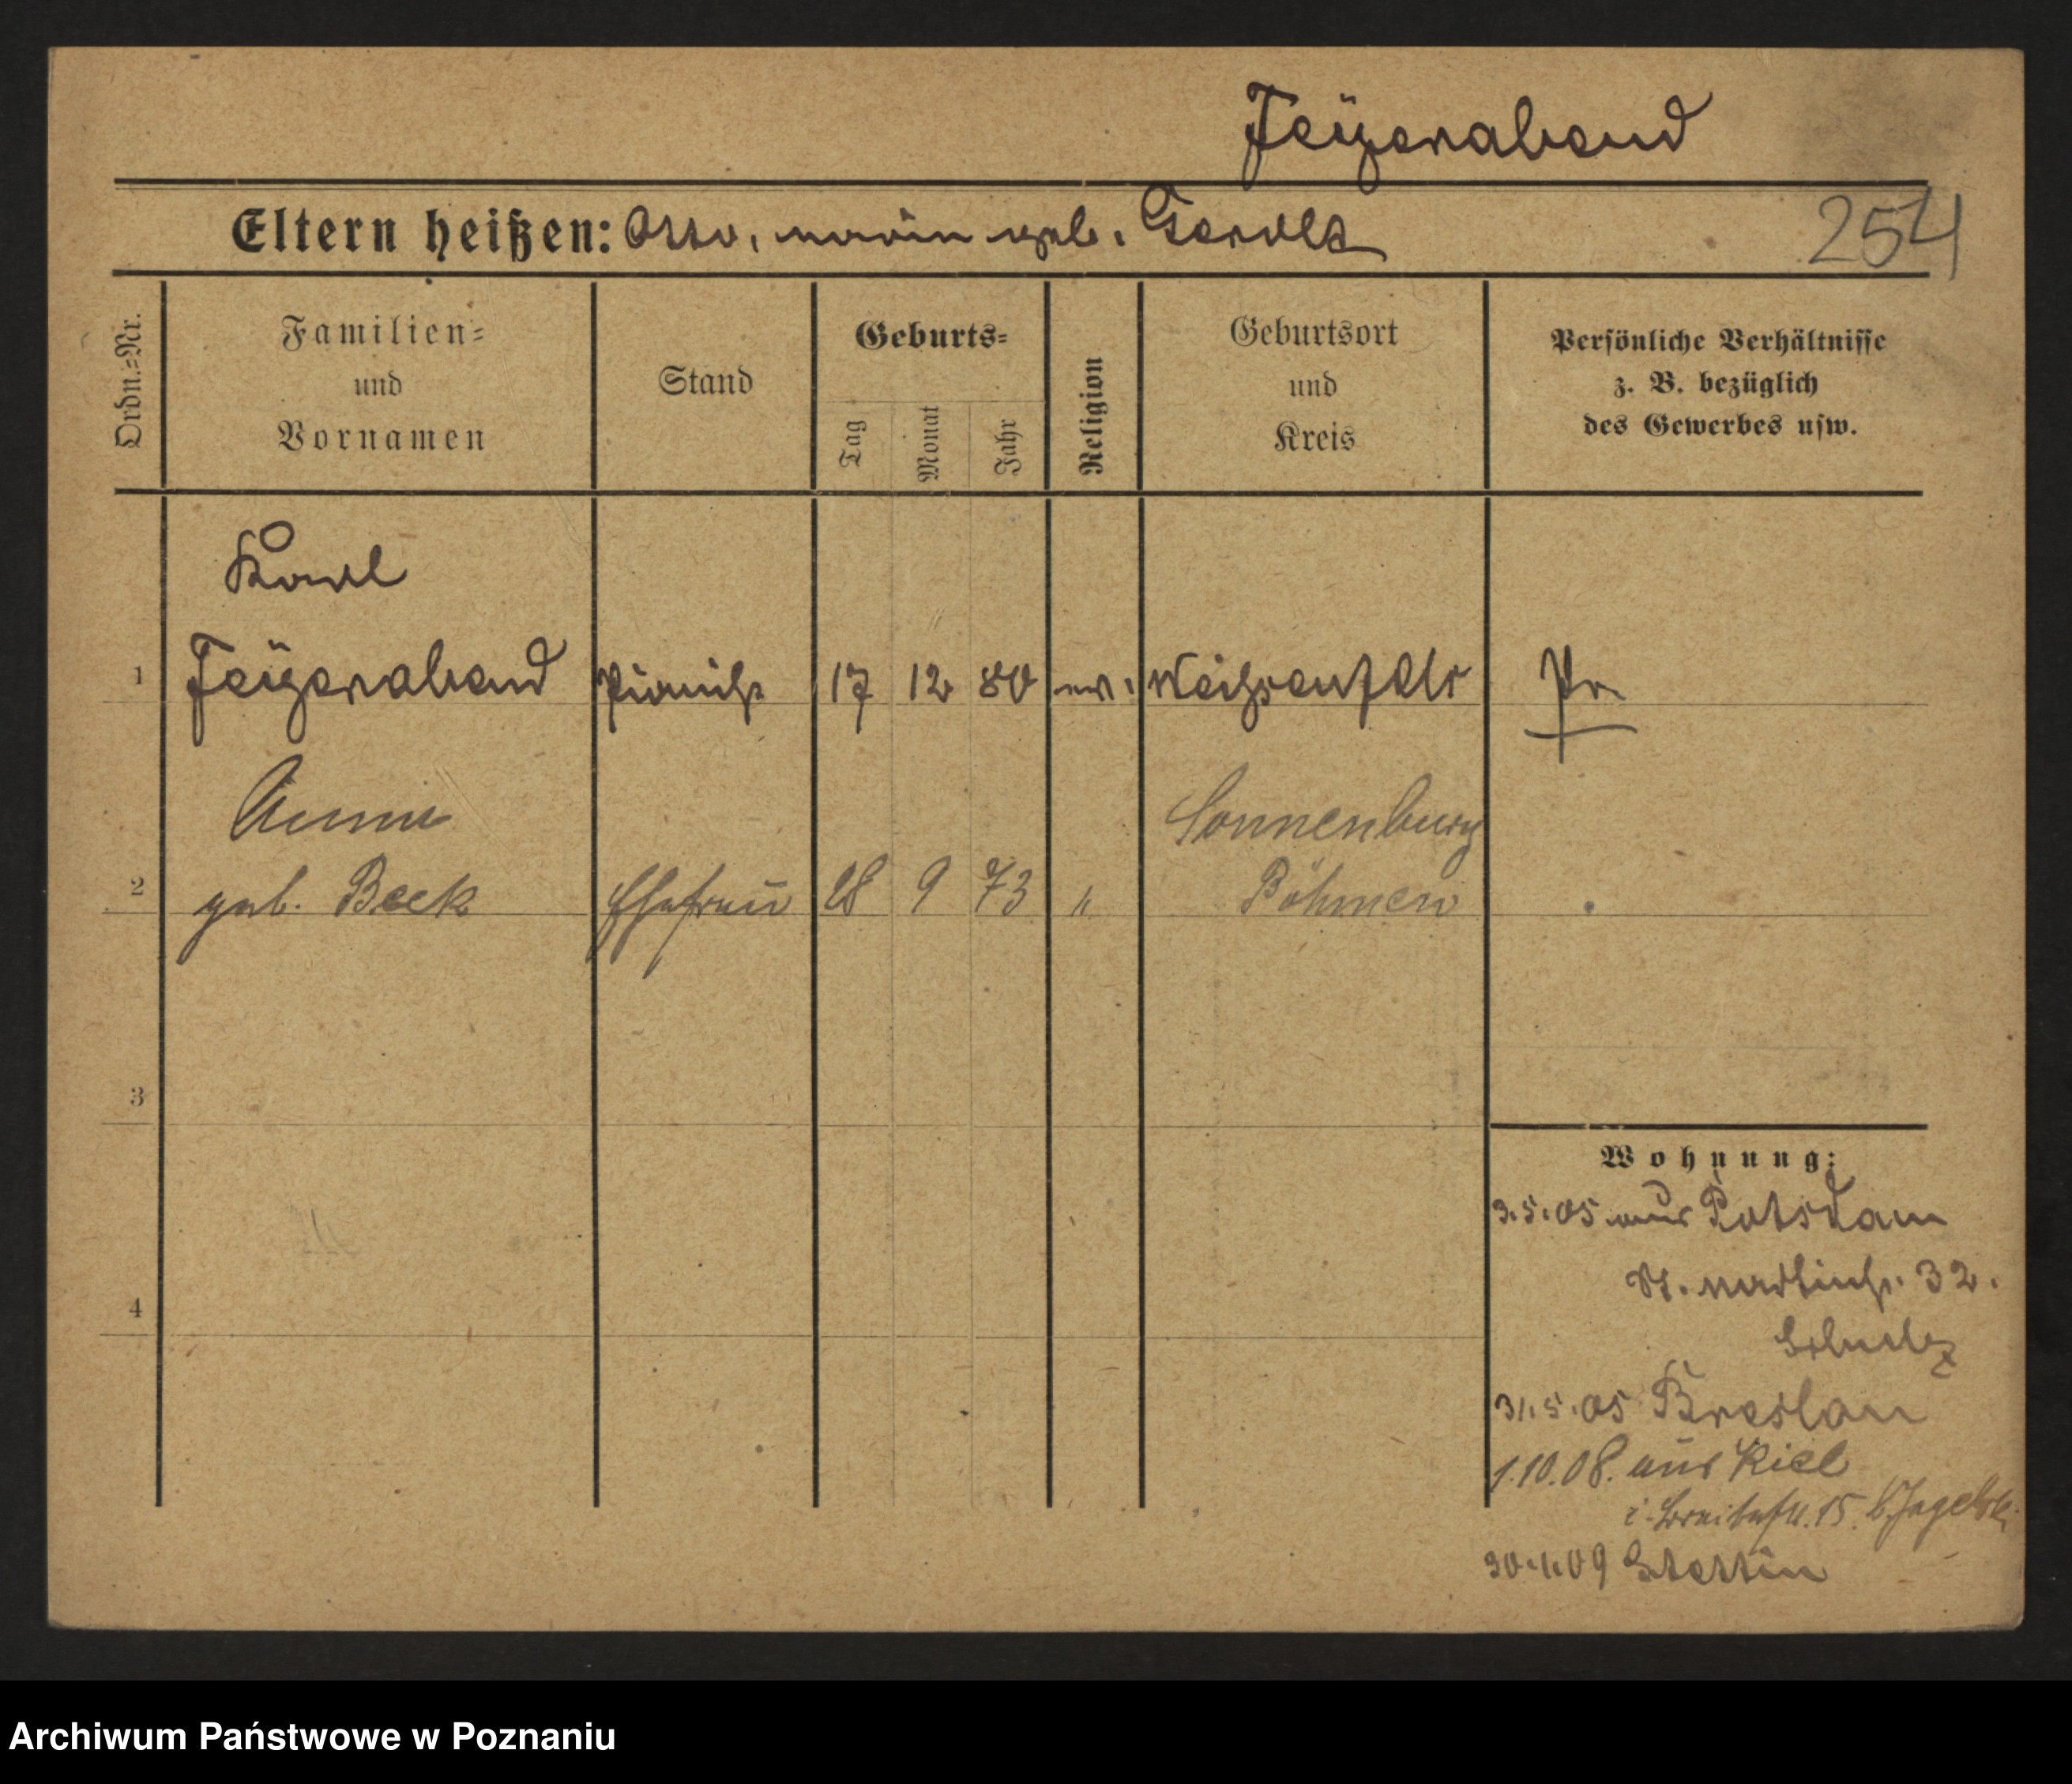 Feÿerabend
Eltern heißen: Otto, Marie geb. Gerold
254
Ordn.=Nr.
Familien=
und
Vornamen
Stand
Geburts=
Tag
Monat
Jahr
Religion
Geburtsort
und
Kreis
Persönliche Verhältnisse
z. B. bezüglich
des Gewerbes usw.
Karl
1 Feÿerabend Pianist 17 12 80 ev. Weißenfels Pr.
Anna
Sonnenburg
2 geb. Beck Ehefrau 28 9 73 " Böhmen
3
Wohnung:
3.5.05 aus Potsdam
St. Martinstr. 32.
4
Schulz
31.5.05 Breslau
1.10.08. aus Kiel
i. Breitestr. 15. b. Jagelski
30.1.09 Stettin
Archiwum Państwowe w Poznaniu